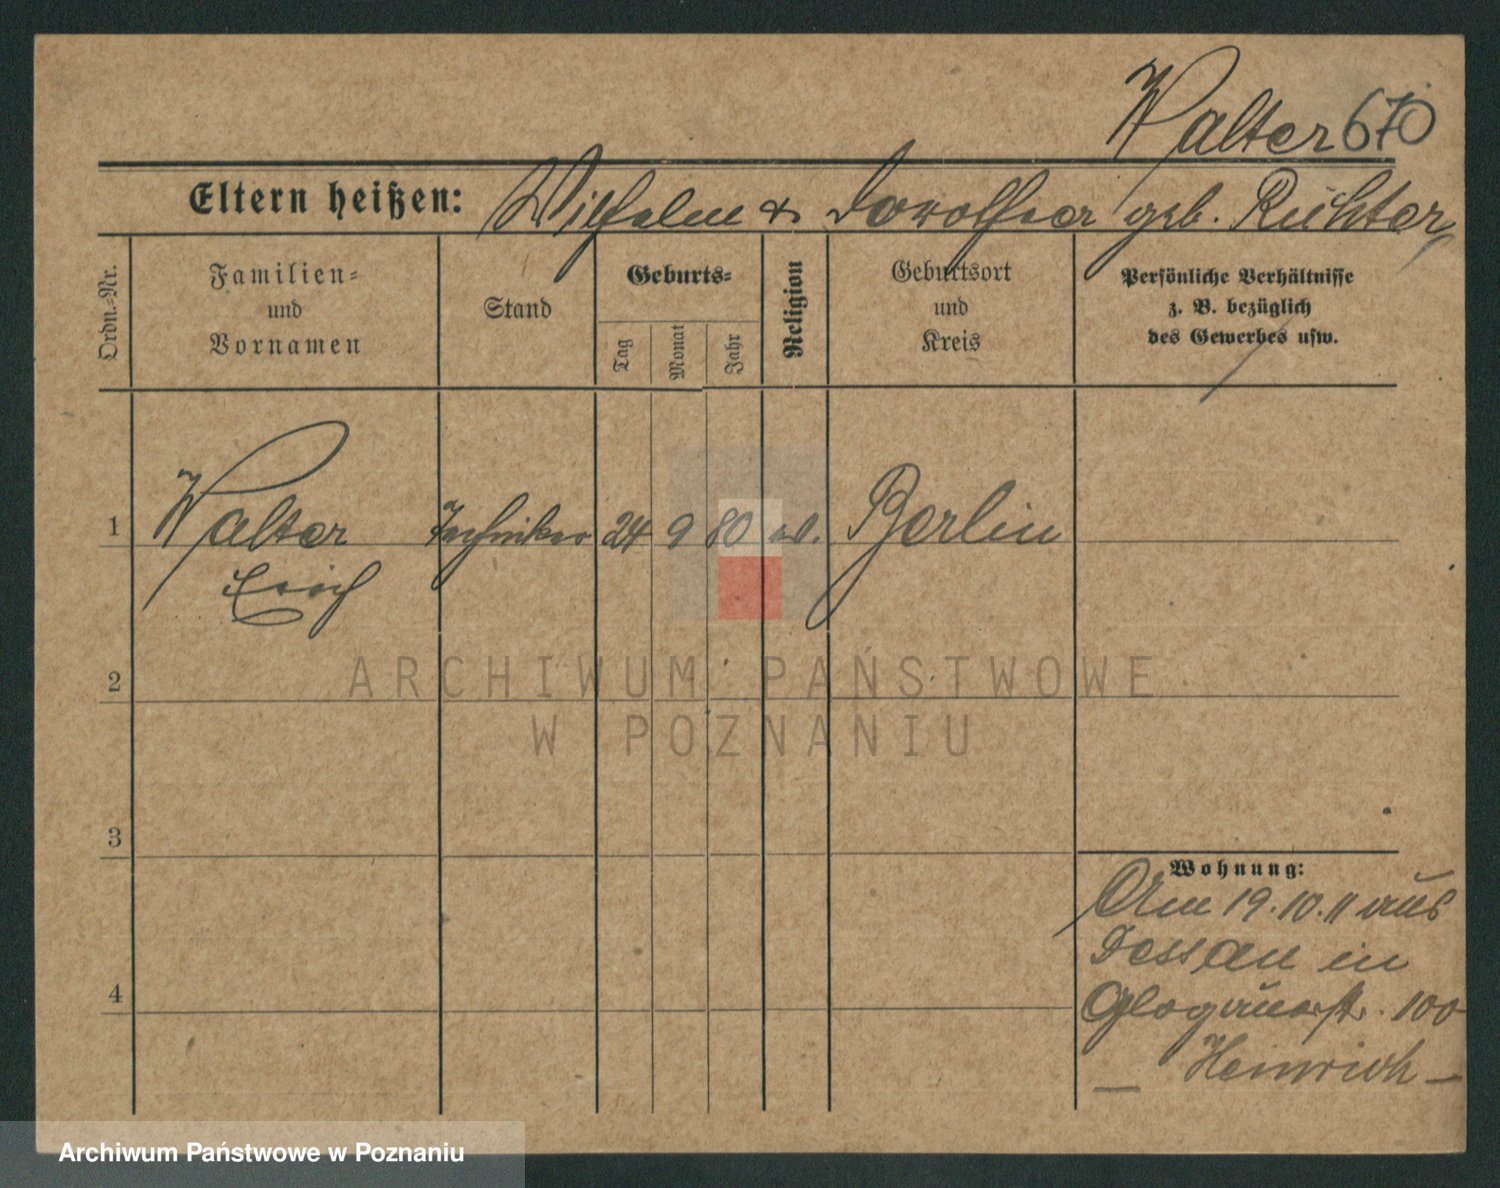 Walter 670
Eltern heißen: Wilhelm & Dorothea geb. Richter
Ordn.-Nr.
Familien-
und
Vornamen
Stand
Geburts-
Tag
Monat
Jahr
Religion
Geburtsort
und
Kreis
Persönliche Verhältnisse
z. B. bezüglich
des Gewerbes usw.
1 Walter Techniker 24 9 80 ev. Berlin
Erich
2
3
4
Wohnung:
Am 19.10.11 aus
Dessau in
Glogauerstr. 100
— Heinrich —
ARCHIWUM PAŃSTWOWE
W POZNANIU
Archiwum Państwowe w Poznaniu